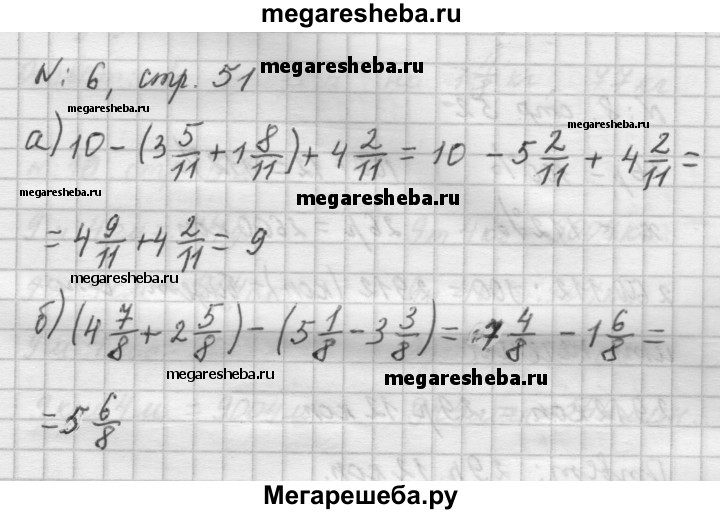 megaresheba.ru
№: 6, стр. 51 megaresheba.ru
megaresheba.ru
megaresheba.ru
а) 10 - (3 5/11 + 1 8/11) + 4 2/11 = 10 - 5 2/11 + 4 2/11 =
megaresheba.ru
megaresheba.ru
= 4 9/11 + 4 2/11 = 9
megaresheba.ru
б) (4 7/8 + 2 5/8) - (5 1/8 - 3 3/8) = 7 4/8 - 1 6/8 =
megaresheba.ru
megaresheba.ru
= 5 6/8
Мегарешеба.ру